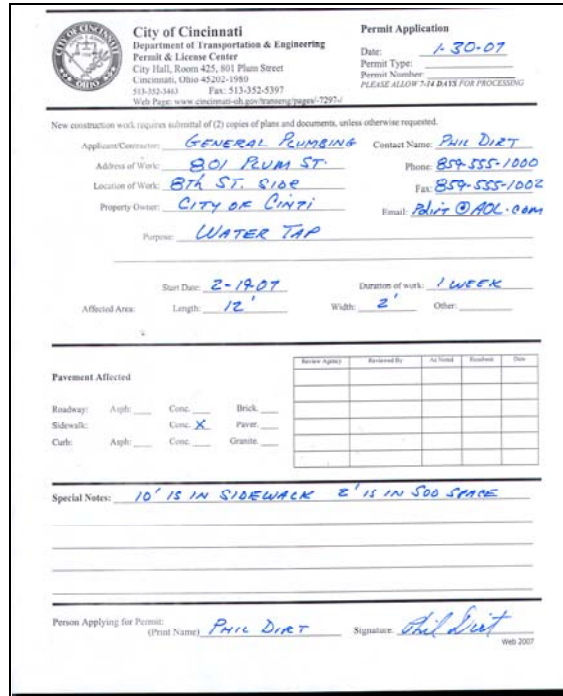 CITY OF CINCINNATI
OHIO
City of Cincinnati
Department of Transportation & Engineering
Permit & License Center
City Hall, Room 425, 801 Plum Street
Cincinnati, Ohio 45202-1980
513-352-3463 Fax: 513-352-5397
Web Page: www.cincinnati-oh.gov/transeng/pages/-7297-/
Permit Application
Date: 1-30-07
Permit Type:
Permit Number:
PLEASE ALLOW 7-14 DAYS FOR PROCESSING
New construction work requires submittal of (2) copies of plans and documents, unless otherwise requested.
Applicant/Contractor: GENERAL PLUMBING Contact Name: PHIL DIRT
Address of Work: 801 PLUM ST. Phone: 859-555-1000
Location of Work: 8Th ST. SIDE Fax: 859-555-1002
Property Owner: CITY OF CINTI Email: Pdirt@AOL.com
Purpose: WATER TAP
Start Date: 2-19-07 Duration of work: 1 WEEK
Affected Area: Length: 12' Width: 2' Other:
Pavement Affected
Review Agency Reviewed By As Noted Resubmit Date
Roadway: Asph: Conc. Brick.
Sidewalk: Conc. X Paver.
Curb: Asph: Conc. Granite.
Special Notes: 10' IS IN SIDEWALK 2' IS IN SOD SPACE
Person Applying for Permit:
(Print Name) PHIL DIRT Signature: Phil Dirt
Web 2007